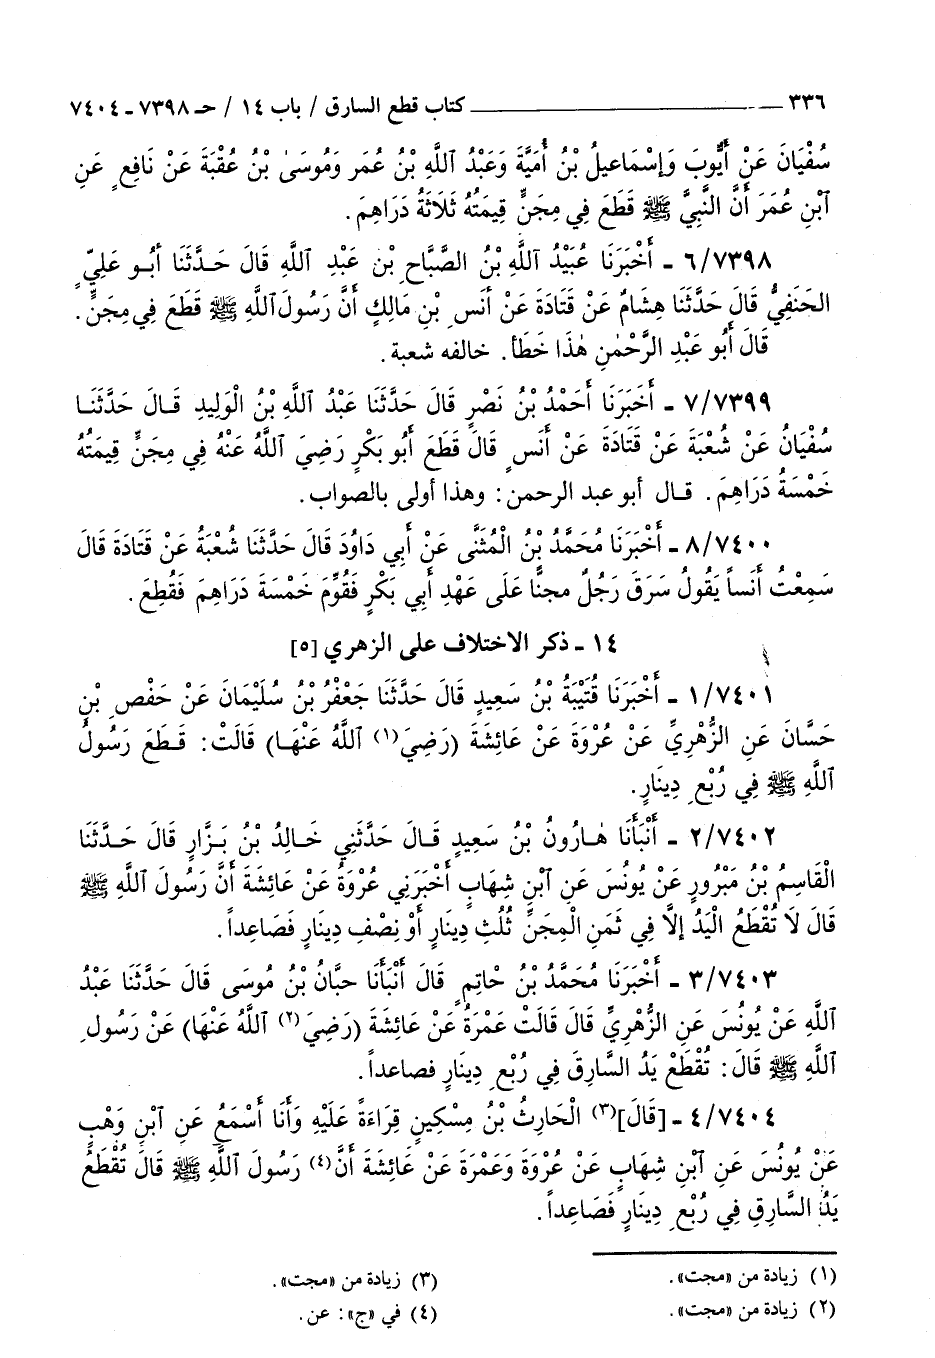 ٣٣٦ ــــــ كتاب قطع السارق / باب ١٤ / حـ ٧٣٩٨ ـ ٧٤٠٤
سُفْيَانَ عَنْ أَيُّوبَ وَإِسْمَاعِيلُ بْنُ أُمَيَّةَ وَعَبْدُ ٱللَّهِ بْنُ عُمَرَ وَمُوسَىٰ بْنُ عُقْبَةَ عَنْ نَافِعٍ عَنِ
ٱبْنِ عُمَرَ أَنَّ النَّبِيَّ ﷺ قَطَعَ فِي مِجَنٍّ قِيمَتُهُ ثَلَاثَةُ دَرَاهِمَ.
٦/٧٣٩٨ ـ أَخْبَرَنَا عُبَيْدُ ٱللَّهِ بْنُ الصَّبَّاحِ بْنِ عَبْدِ ٱللَّهِ قَالَ حَدَّثَنَا أَبُو عَلِيٍّ
الحَنَفِيُّ قَالَ حَدَّثَنَا هِشَامٌ عَنْ قَتَادَةَ عَنْ أَنَسِ بْنِ مَالِكٍ أَنَّ رَسُولَ ٱللَّهِ ﷺ قَطَعَ فِي مِجَنٍّ.
قَالَ أَبُو عَبْدِ الرَّحْمٰنِ هٰذَا خَطَأ. خالفه شعبة.
٧/٧٣٩٩ ـ أَخَبَرَنَا أَحَمْدُ بْنُ نَصْرٍ قَالَ حَدَّثَنَا عَبْدُ ٱللَّهِ بْنُ الْوَلِيدِ قَالَ حَدَّثَنَا
سُفْيَانُ عَنْ شُعْبَةَ عَنْ قَتَادَةَ عَنْ أَنَسٍ قَالَ قَطَعَ أَبُو بَكْرٍ رَضِيَ ٱللَّهُ عَنْهُ فِي مِجَنٍّ قِيمَتُهُ
خَمْسَةُ دَرَاهِمَ. قال أبو عبد الرحمن: وهذا أولى بالصواب.
٨/٧٤٠٠ ـ أَخْبَرَنَا مُحَمَّدُ بْنُ الْمُثَنَّى عَنْ أَبِي دَاوُدَ قَالَ حَدَّثَنَا شُعْبَةُ عَنْ قَتَادَةَ قَالَ
سَمِعْتُ أَنَساً يَقُولُ سَرَقَ رَجُلٌ مجنًّا عَلَى عَهْدِ أَبِي بَكْرٍ فَقُوِّمَ خَمْسَةَ دَرَاهِمَ فَقُطِعَ.
١٤ ـ ذكر الاختلاف على الزهري [٥]
١/٧٤٠١ ـ أَخْبَرَنَا قُتَيْبَةُ بْنُ سَعِيدٍ قَالَ حَدَّثَنَا جَعْفَرُ بْنُ سُلَيْمَانَ عَنْ حَفْصِ بْنِ
حَسَّانَ عَنِ الزُّهْرِيِّ عَنْ عُرْوَةَ عَنْ عَائِشَةَ (رَضِيَ(١) ٱللَّهُ عَنْهَا) قَالَتْ: قَطَعَ رَسُولُ
ٱللَّهِ ﷺ فِي رُبْعِ دِينَارٍ.
٢/٧٤٠٢ ـ أَنْبَأَنَا هَارُونُ بْنُ سَعِيدٍ قَالَ حَدَّثَنِي خَالِدُ بْنُ بَزَّارٍ قَالَ حَدَّثَنَا
الْقَاسِمُ بْنُ مَبْرُورٍ عَنْ يُونُسَ عَنِ ٱبْنِ شِهَابٍ أَخْبَرَنِي عُرْوَةُ عَنْ عَائِشَةَ أَنَّ رَسُولَ ٱللَّهِ ﷺ
قَالَ لَا تُقْطَعُ الْيَدُ إلَّا فِي ثَمَنِ الْمِجَنِّ ثُلُثِ دِينَارٍ أَوْ نِصْفِ دِينَارٍ فَصَاعِداً.
٣/٧٤٠٣ ـ أَخْبَرَنَا مُحَمَّدُ بْنُ حَاتِمٍ قَالَ أَنْبَأَنَا حبَّانُ بْنُ مُوسَى قَالَ حَدَّثَنَا عَبْدُ
ٱللَّهِ عَنْ يُونُسَ عَنِ الزُّهْرِيِّ قَالَ قَالَتْ عَمْرَةُ عَنْ عَائِشَةَ (رَضِيَ(٢) ٱللَّهُ عَنْهَا) عَنْ رَسُولِ
ٱللَّهِ ﷺ قَالَ: تُقْطَعُ يَدُ السَّارِقِ فِي رُبْعِ دِينَارٍ فصاعداً.
٤/٧٤٠٤ ـ [قَالَ](٣) الْحَارِثُ بْنُ مِسْكِينٍ قِرَاءَةً عَلَيْهِ وَأَنَا أَسْمَعُ عَنِ ٱبْنِ وَهْبٍ
عَنْ يُونُسَ عَنِ ٱبْنِ شِهَابٍ عَنْ عُرْوَةَ وَعَمْرَةَ عَنْ عَائِشَةَ أَنَّ(٤) رَسُولَ ٱللَّهِ ﷺ قَالَ تُقْطَعُ
يَدُ السَّارِقِ فِي رُبْعِ دِينَارٍ فَصَاعِداً.
(١) زيادة من «مجت».
(٢) زيادة من «مجت».
(٣) زيادة من «مجت».
(٤) في «ج»: عن.